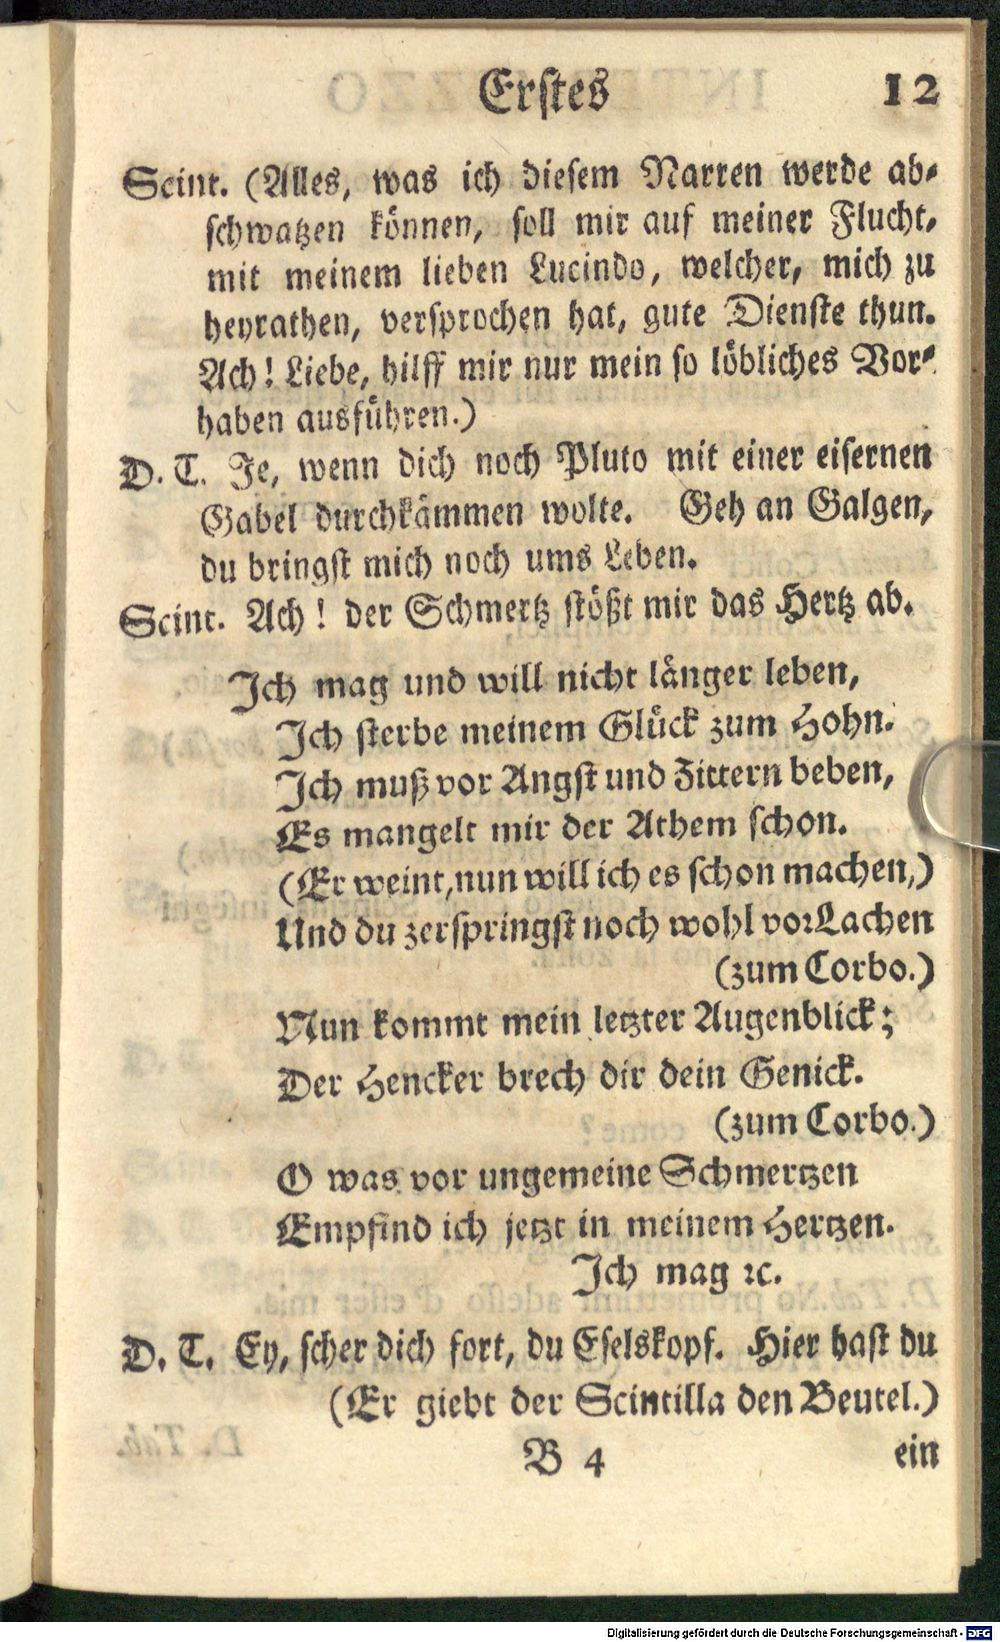 Erstes 12
Scint. (Alles, was ich diesem Narren werde ab-
schwatzen können, soll mir auf meiner Flucht,
mit meinem lieben Lucindo, welcher, mich zu
heyrathen, versprochen hat, gute Dienste thun.
Ach! Liebe, hilff mir nur mein so löbliches Vor-
haben ausführen.)
D. T. Je, wenn dich noch Pluto mit einer eisernen
Gabel durchkämmen wolte. Geh an Galgen,
du bringst mich noch ums Leben.
Scint. Ach! der Schmertz stößt mir das Hertz ab.
Ich mag und will nicht länger leben,
Ich sterbe meinem Glück zum Hohn.
Ich muß vor Angst und Zittern beben,
Es mangelt mir der Athem schon.
(Er weint, nun will ich es schon machen,)
Und du zerspringst noch wohl vor Lachen
(zum Corbo.)
Nun kommt mein letzter Augenblick;
Der Hencker brech dir dein Genick.
(zum Corbo.)
O was vor ungemeine Schmertzen
Empfind ich jetzt in meinem Hertzen.
Ich mag ꝛc.
D. T. Ey, scher dich fort, du Eselskopf. Hier hast du
(Er giebt der Scintilla den Beutel.)
B 4 ein
Digitalisierung gefördert durch die Deutsche Forschungsgemeinschaft - DFG